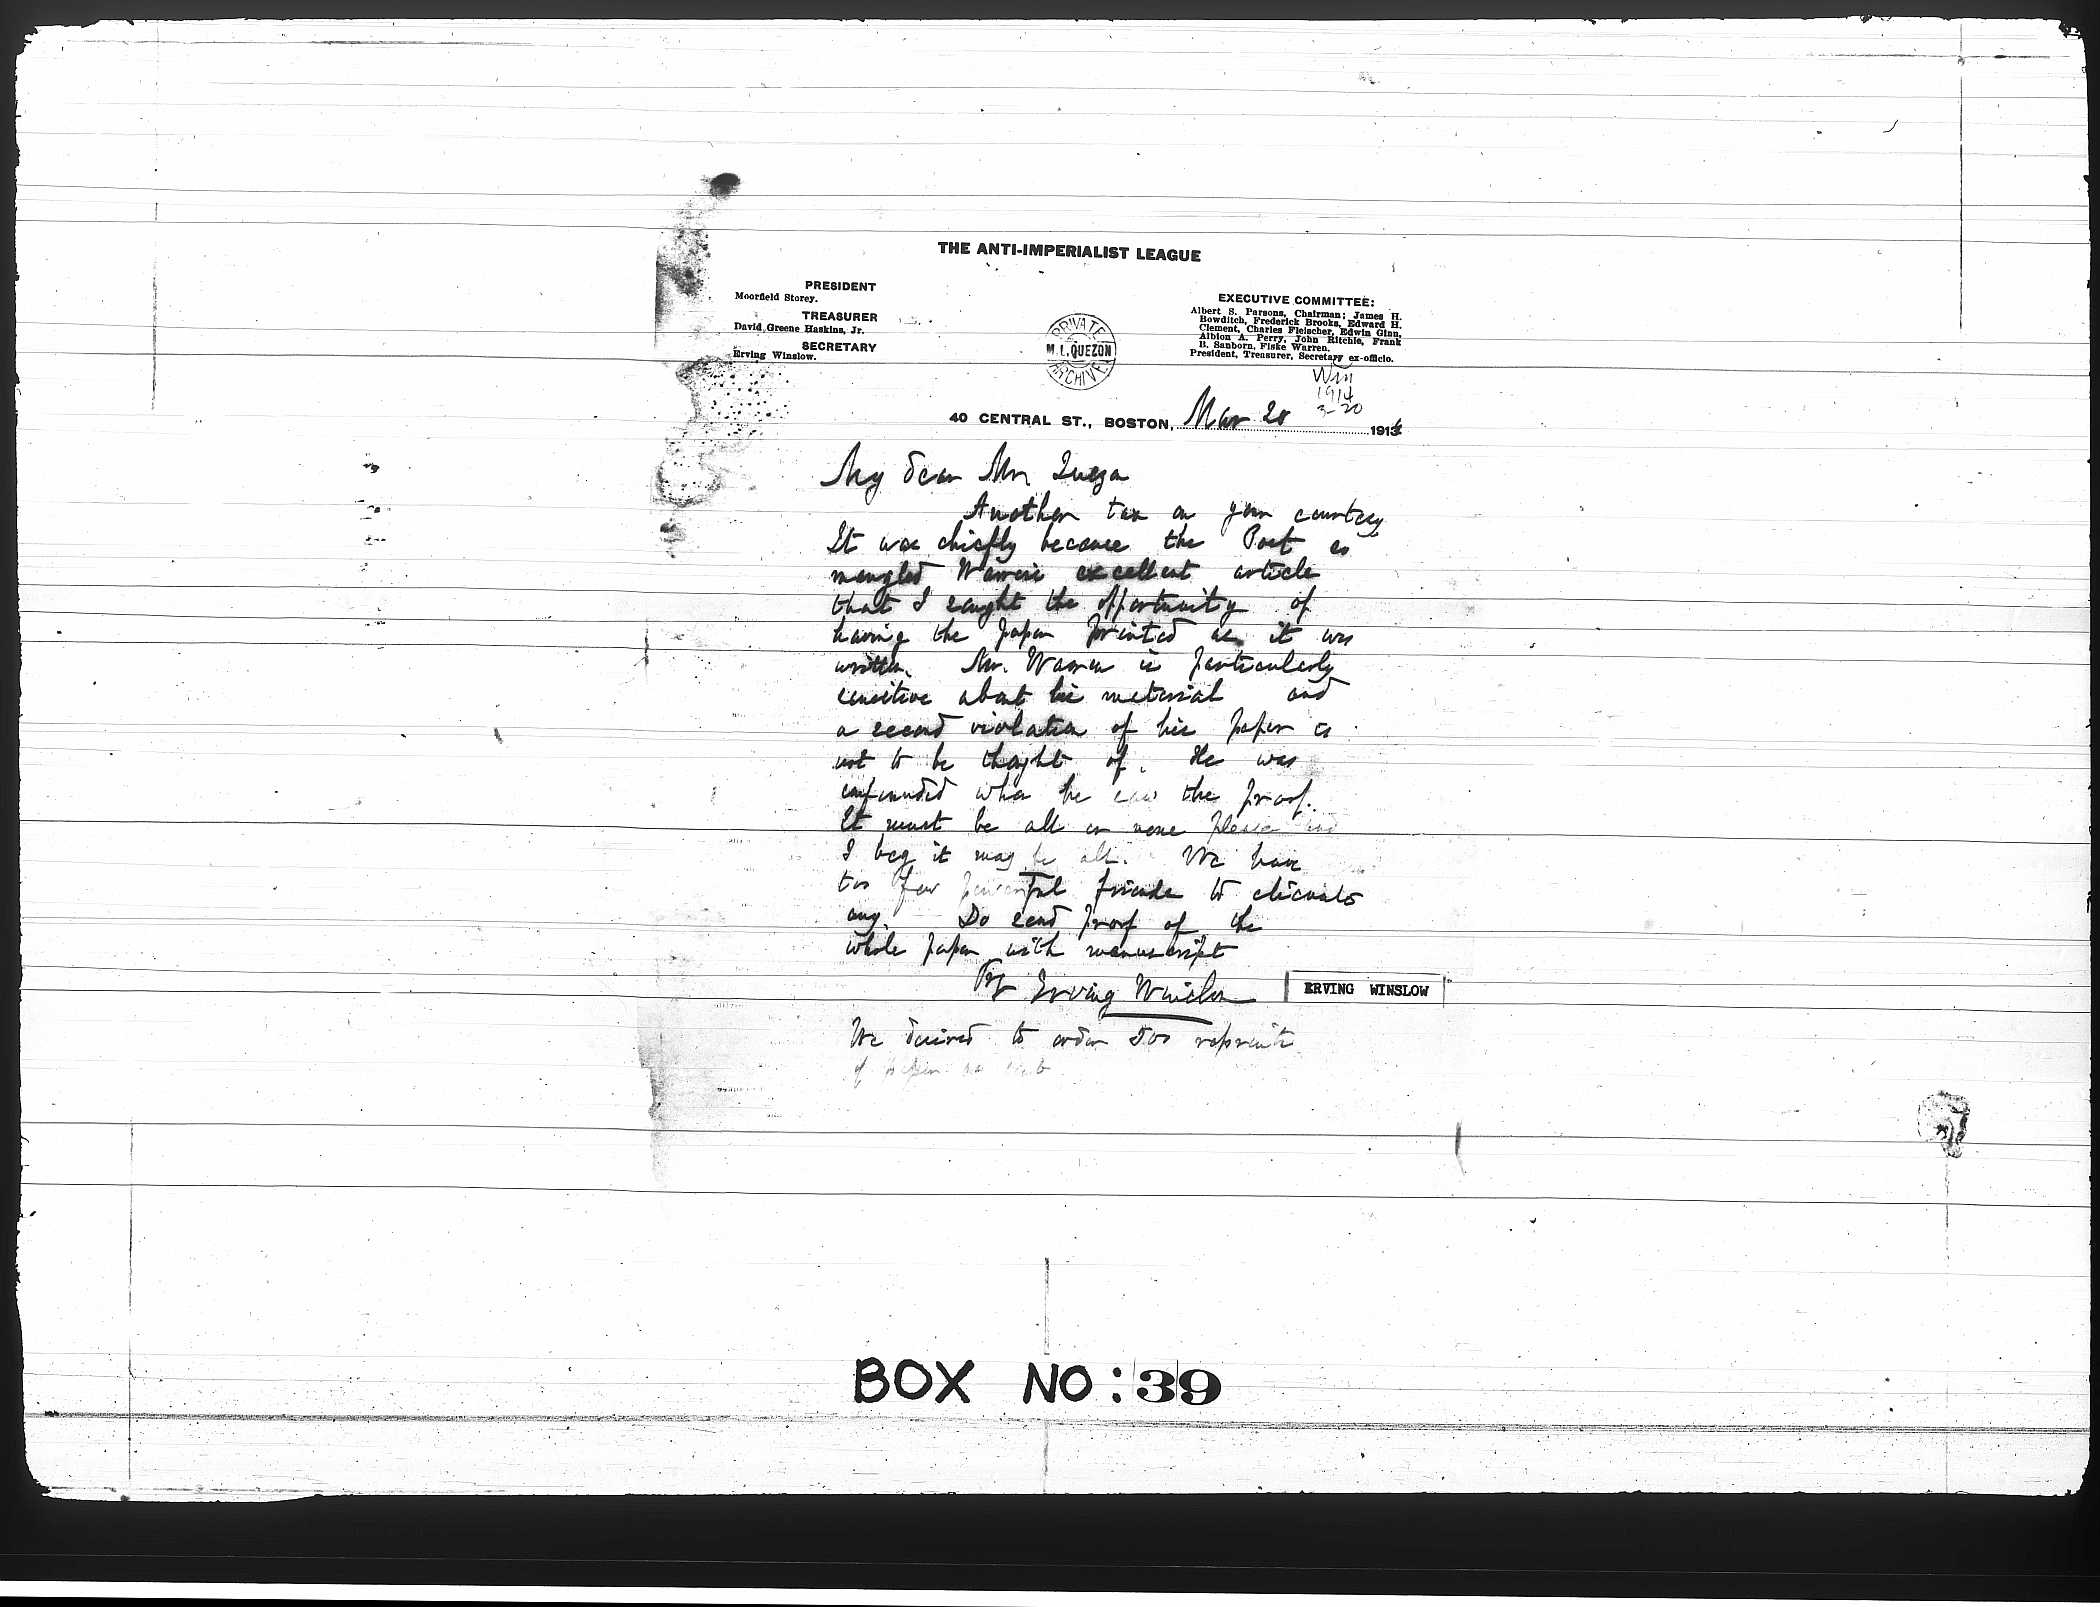 THE ANTI-IMPERIALIST LEAGUE
PRESIDENT
Moorfield Storey.
TREASURER
David Greene Haskins, Jr.
SECRETARY
Erving Winslow.
PRIVATE
M.L.QUEZON
ARCHIVE
EXECUTIVE COMMITTEE:
Albert S. Parsons, Chairman; James H.
Bowditch, Frederick Brooks, Edward H.
Clement, Charles Fleischer, Edwin Ginn,
Albion A. Perry, John Ritchie, Frank
B. Sanborn, Fiske Warren.
President, Treasurer, Secretary ex-officio.
Win
1914
3-20
40 CENTRAL ST., BOSTON, Mar 20 1914
My dear Mr. Quezon
Another tax on your courtesy
It was chiefly because the Post so
mangled Warren's excellent article
that I sought the opportunity of
having the paper printed as it was
written. Mr. Warren is particularly
sensitive about his material and
a second violation of his paper is
not to be thought of. He was
confounded when he saw the proof.
It must be all or none please and
I beg it may be all. We have
too few powerful friends to alienate
any. Do send proof of the
whole paper with manuscript
Erving Winslow
ERVING WINSLOW
We desired to order 500 reprints
of paper as
BOX NO: 39